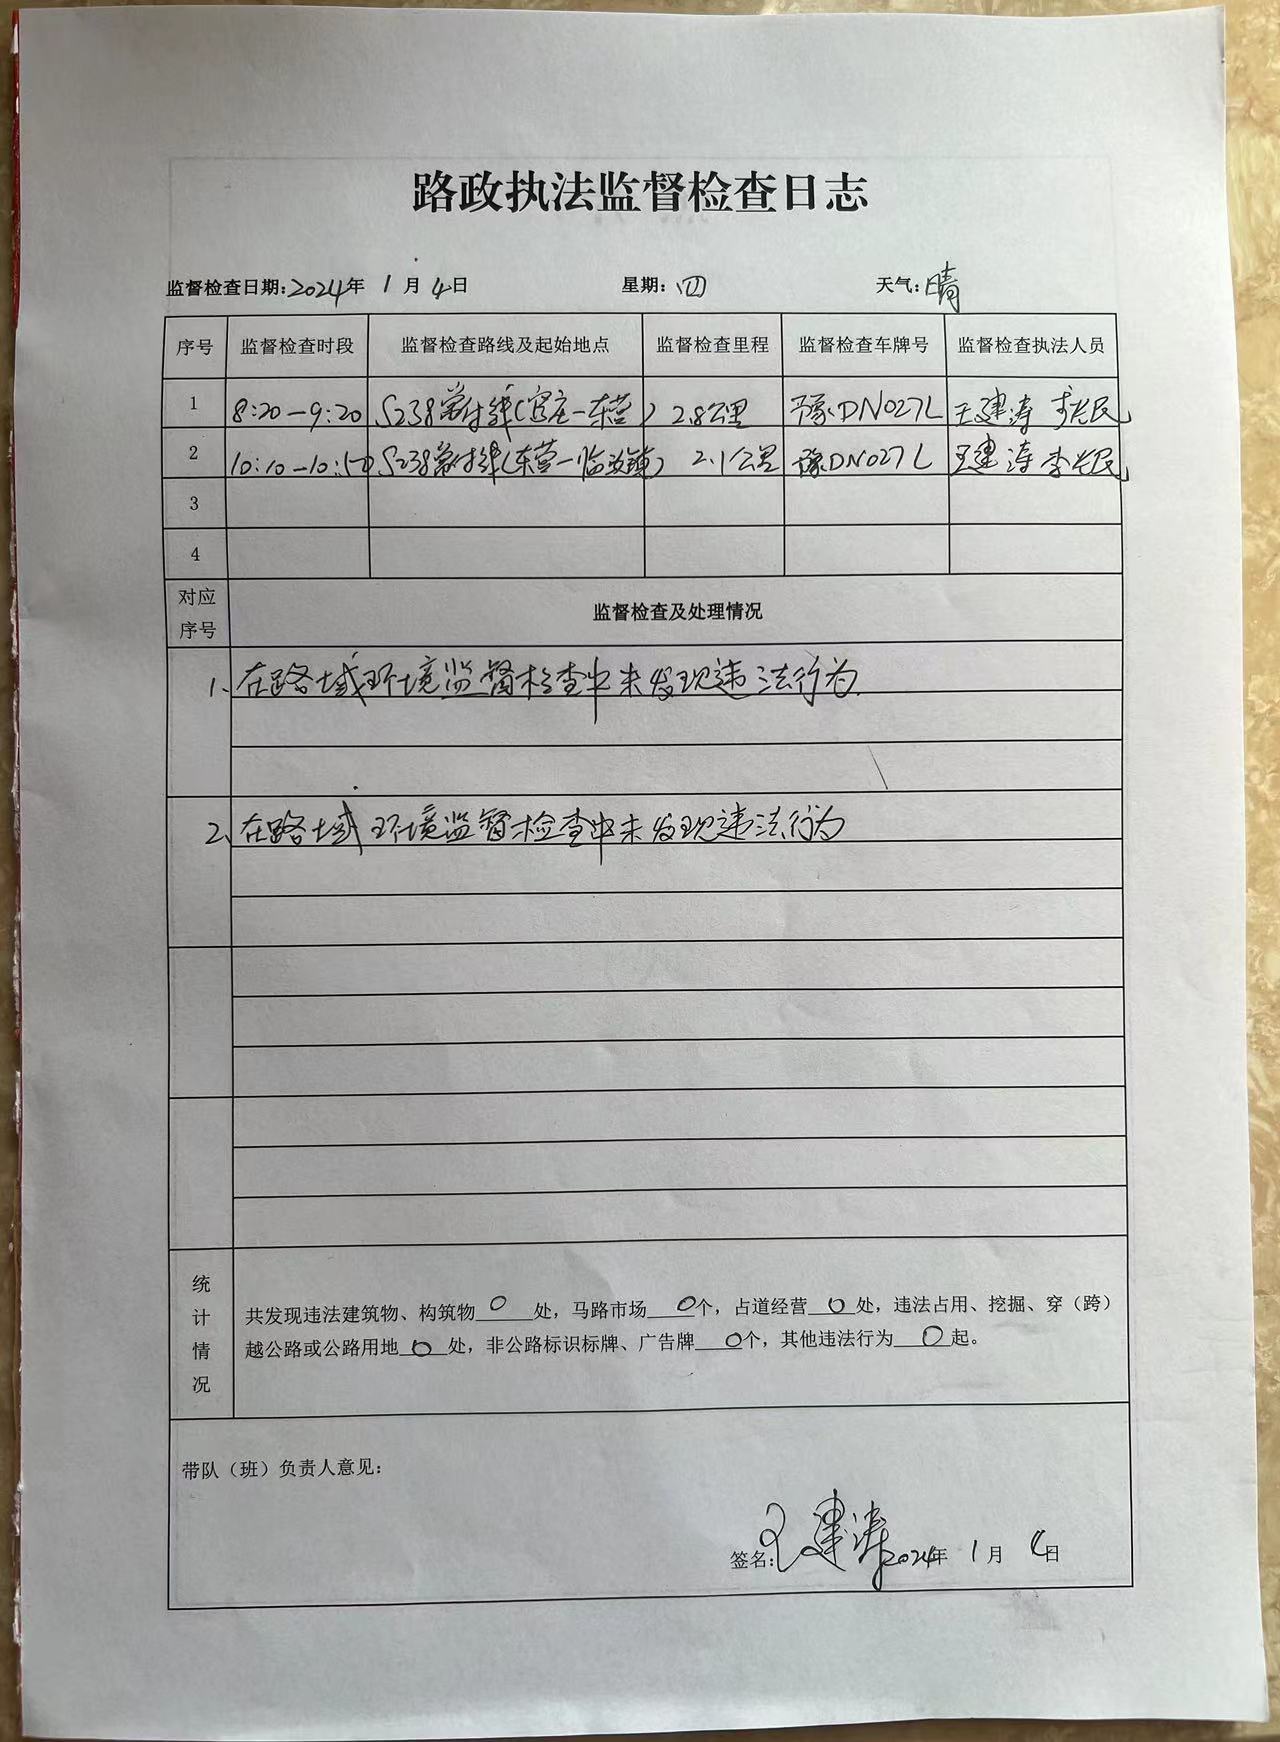 路政执法监督检查日志
监督检查日期:2024年 1月4日 星期:四 天气:晴
序号 监督检查时段 监督检查路线及起始地点 监督检查里程 监督检查车牌号 监督检查执法人员
1 8:20—9:20 S238常付线(官庄—东营) 2.8公里 豫DN027L 王建涛 李长民
2 10:10—10:50 S238常付线(东营—临汝镇) 2.1公里 豫DN027L 王建涛 李长民
3
4
对应
序号
监督检查及处理情况
1、在路域环境监督检查中未发现违法行为.
2、在路域环境监督检查中未发现违法行为
统
计
情
况
共发现违法建筑物、构筑物 0 处，马路市场 0个，占道经营 0 处，违法占用、挖掘、穿（跨）
越公路或公路用地 0 处，非公路标识标牌、广告牌 0个，其他违法行为 0 起。
带队（班）负责人意见：
签名:王建涛 2024年 1月 4日